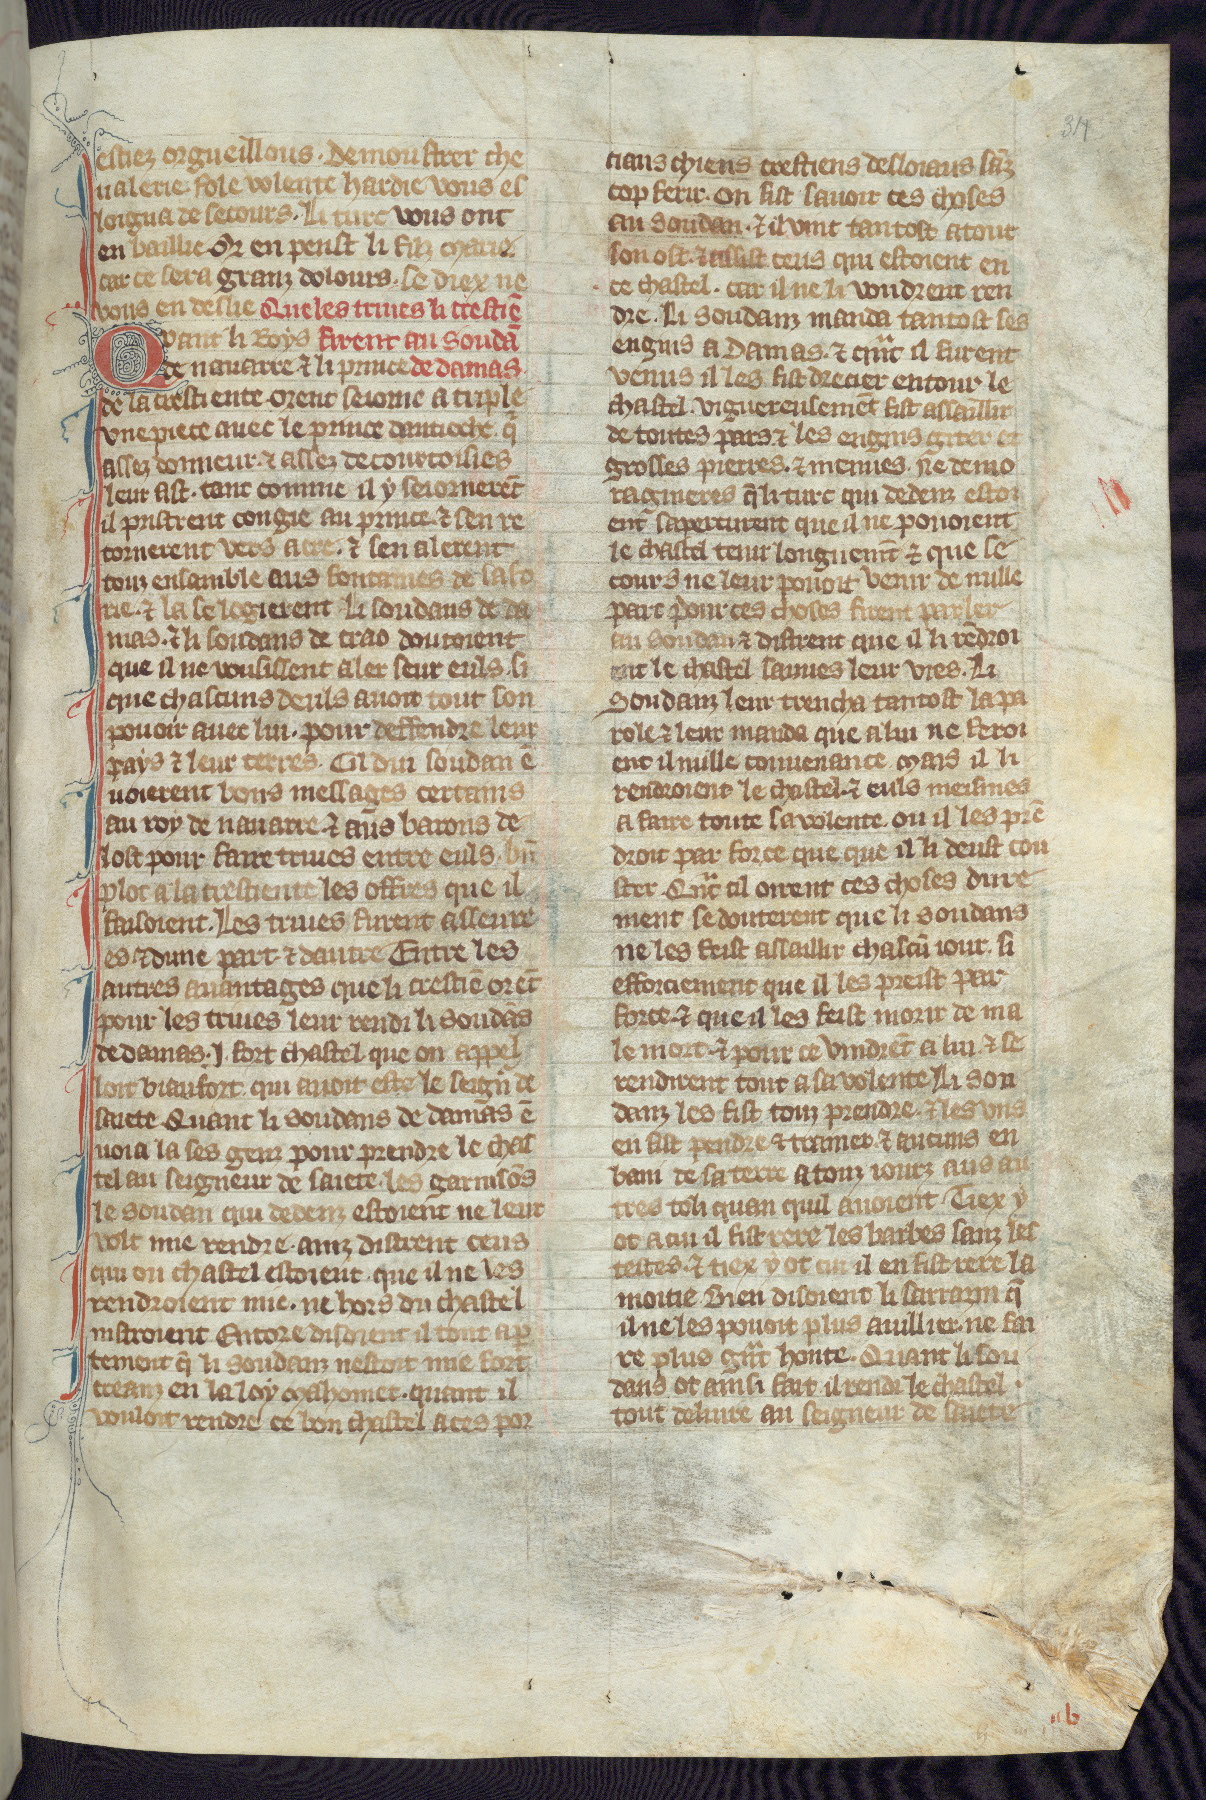 314
estiez orgueillous. Demoustrer che
ualerie fole volente hardie vous es
loigna de secours. Li turc vous ont
en baillie Or en penst li filz marie.
car ce sera granz dolours. se diex ne
vous en deslie Que les triues li crestiē
Quant li Roys firent au Soudā
de nauarre ⁊ li prince de damas
de la crestiente orent seiorne a triple
vne piece auec le prince dantioche. q̄
assez donneur. ⁊ assez de courtoisies
leur fist. tant comme il y seiornerēt
il pristrent congie au prince. ⁊ sen re
tornerent vers acre. ⁊ sen alerent
touz ensamble aus fontaines de safo
rie. ⁊ la se logierent Li soudans de da
mas. ⁊ li soudans de crac doutoient
que il ne vousissent aler seur euls. si
que chascuns deuls auoit tout son
pouoir auec lui. pour deffendre leur
pays ⁊ leur terres. Cil dui soudan ē
uoierent bons messages certains
au roy de nauarre. ⁊ aus barons de
lost pour faire triues entre euls. bn̄
plot a la crestiente les offres que il
faisoient. Les triues furent asseure
es ⁊ dune part ⁊ dautre Entre les
autres auantages que li crestiē orēt
pour les triues leur rendi li soudās
de damas .j. fort chastel que on appel
loit biaufort. qui auoit este le seigr̄ de
saiete Quant li soudans de damas ē
uoia la ses genz pour prendre le chas
tel au seigneur de saiete. les garnisōs
le soudan qui dedenz estoiēt ne leur
volt mie rendre. ainz distrent ceus
qui ou chastel estoient. que il ne les
rendroient mie. ne hors du chastel
nistroient Encore disoient il tout ap
tement q̄ li soudanz nestoit mie fort
creanz en la loy mahomet. quant il
vouloit rendre ce bon chastel a ces por
ciaus chiens crestiens desloiaus sāz
cop ferir. On fist sauoir ces choses
au soudan. ⁊ il vint tantost atout
son ost. ⁊ assist ceus qui estoient en
ce chastel. car il ne li voudrent ren
dre. Li soudanz manda tantost ses
engins a Damas. ⁊ qn̄t il furent
venus il les fist drecier entour le
chastel. viguereusemēt fist assaillir
de toutes pars ⁊ les engins giter et
grosses pierres. ⁊ menues. Ne demo
ra gueres q̄ li turc qui dedenz estoi
ent sapercurent que il ne pouoient
le chastel tenir longuemēt ⁊ que se
cours ne leur pouoit venir de nulle
part Pour ces choses firent parler
au soudan ⁊ distrent que il li rēdroi
ent le chastel sauues leur vies. Li
Soudanz leur trencha tantost la pa
role ⁊ leur manda que a lui ne feroi
ent il nulle conuenance. mais il li
rendroient le chastel. ⁊ euls meismes
a faire toute sa volente. ou il les prē
droit par force que que il li deust cou
ster Qn̄t cil oirent ces choses dure
ment se douterent que li soudans
ne les feist assaillir chascū iour. si
efforciement que il les preist par
force. ⁊ que il les feist morir de ma
le mort. ⁊ pour ce vindrēt a lui. ⁊ se
rendirent tout a sa volente Li sou
danz les fist touz prendre. ⁊ les vns
en fist pendre ⁊ trainer. ⁊ aucuns en
bani de sa terre a touz iourz aus au
tres toli quan quil auoient Tiex y
ot a cui il fist rere les barbes sanz les
testes. ⁊ tiex y ot cui il en fist rere la
moitie Bien disoient li sarrazin q̄
il ne les pouoit plus auillier. ne fai
re plus gn̄t honte. Quant li sou
dans ot ainsi fait. il rendi le chastel.
tout deliure au seigneur de saiete
b